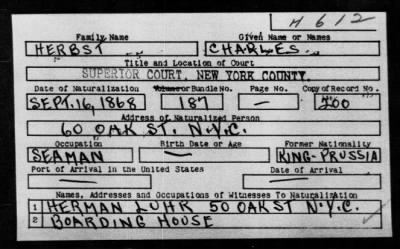 H 612
Family Name Given Name or Names
HERBST CHARLES.
Title and Location of Court
SUPERIOR COURT, NEW YORK COUNTY.
Date of Naturalization Volume or Bundle No. Page No. Copy of Record No.
SEPT. 16, 1868 187 — 200
Address of Naturalized Person
60 OAK ST. N.Y.C.
Occupation Birth Date or Age Former Nationality
SEAMAN — KING-PRUSSIA
Port of Arrival in the United States Date of Arrival
— —
Names, Addresses and Occupations of Witnesses To Naturalization
1 HERMAN LUHR 50 OAK ST N.Y.C.
2 BOARDING HOUSE